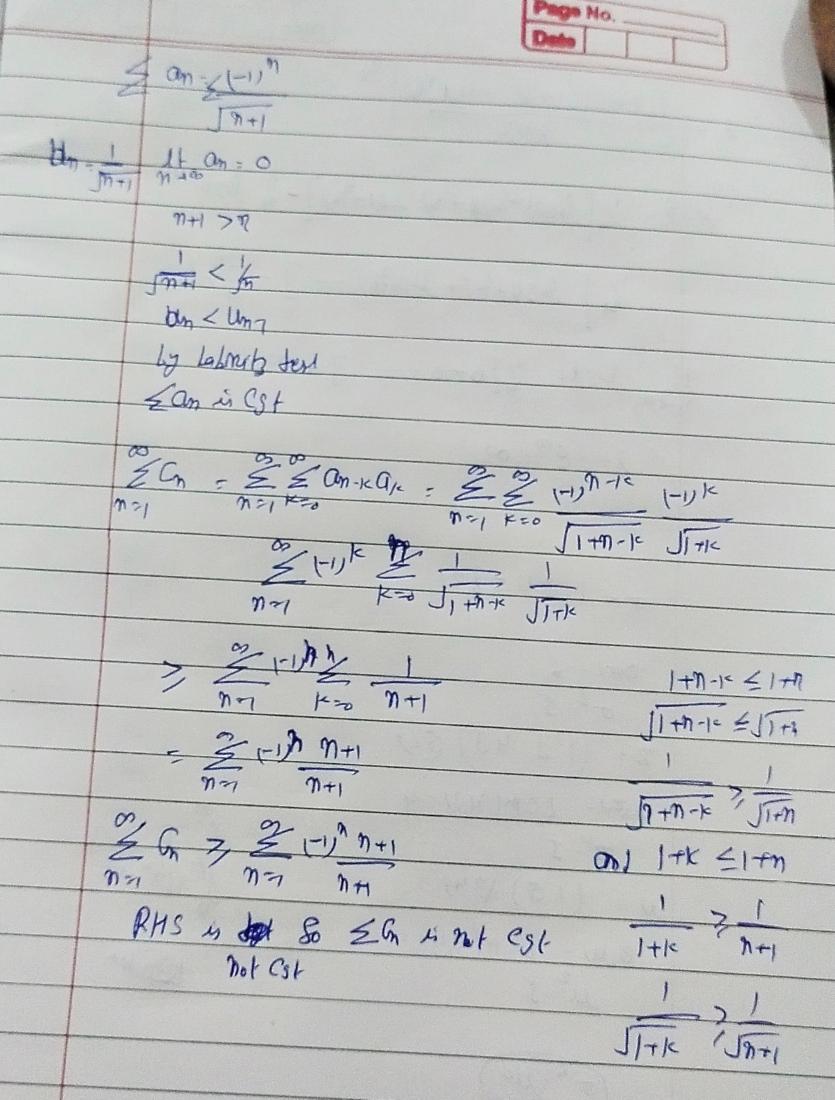 Page No.
Date
∑ an = ∑ (-1)^n / √(n+1)
un = 1/√(n+1) lt n→∞ an = 0
n+1 > n
1/√(n+1) < 1/√n
un < un-1
by test
∑an is Cgt
∑_{n=1}^{∞} Cn = ∑_{n=1}^{∞} ∑_{k=0}^{∞} an-k ak = ∑_{n=1}^{∞} ∑_{k=0}^{∞} (-1)^{n-k} / √(1+n-k) (-1)^k / √(1+k)
∑_{n=1}^{∞} (-1)^k ∑_{k=0}^{n} 1/√(1+n-k) 1/√(1+k)
≥ ∑_{n=1}^{∞} (-1)^n ∑_{k=0}^{n} 1/(n+1)
= ∑_{n=1}^{∞} (-1)^n (n+1)/(n+1)
∑_{n=1}^{∞} Cn ≥ ∑_{n=1}^{∞} (-1)^n (n+1)/(n+1)
RHS is not Cgt So ∑Cn is not Cgt
1+n-k ≤ 1+n
√(1+n-k) ≤ √(1+n)
1/√(1+n-k) ≥ 1/√(1+n)
and 1+k ≤ 1+n
1/(1+k) ≥ 1/(n+1)
1/√(1+k) ≥ 1/√(n+1)